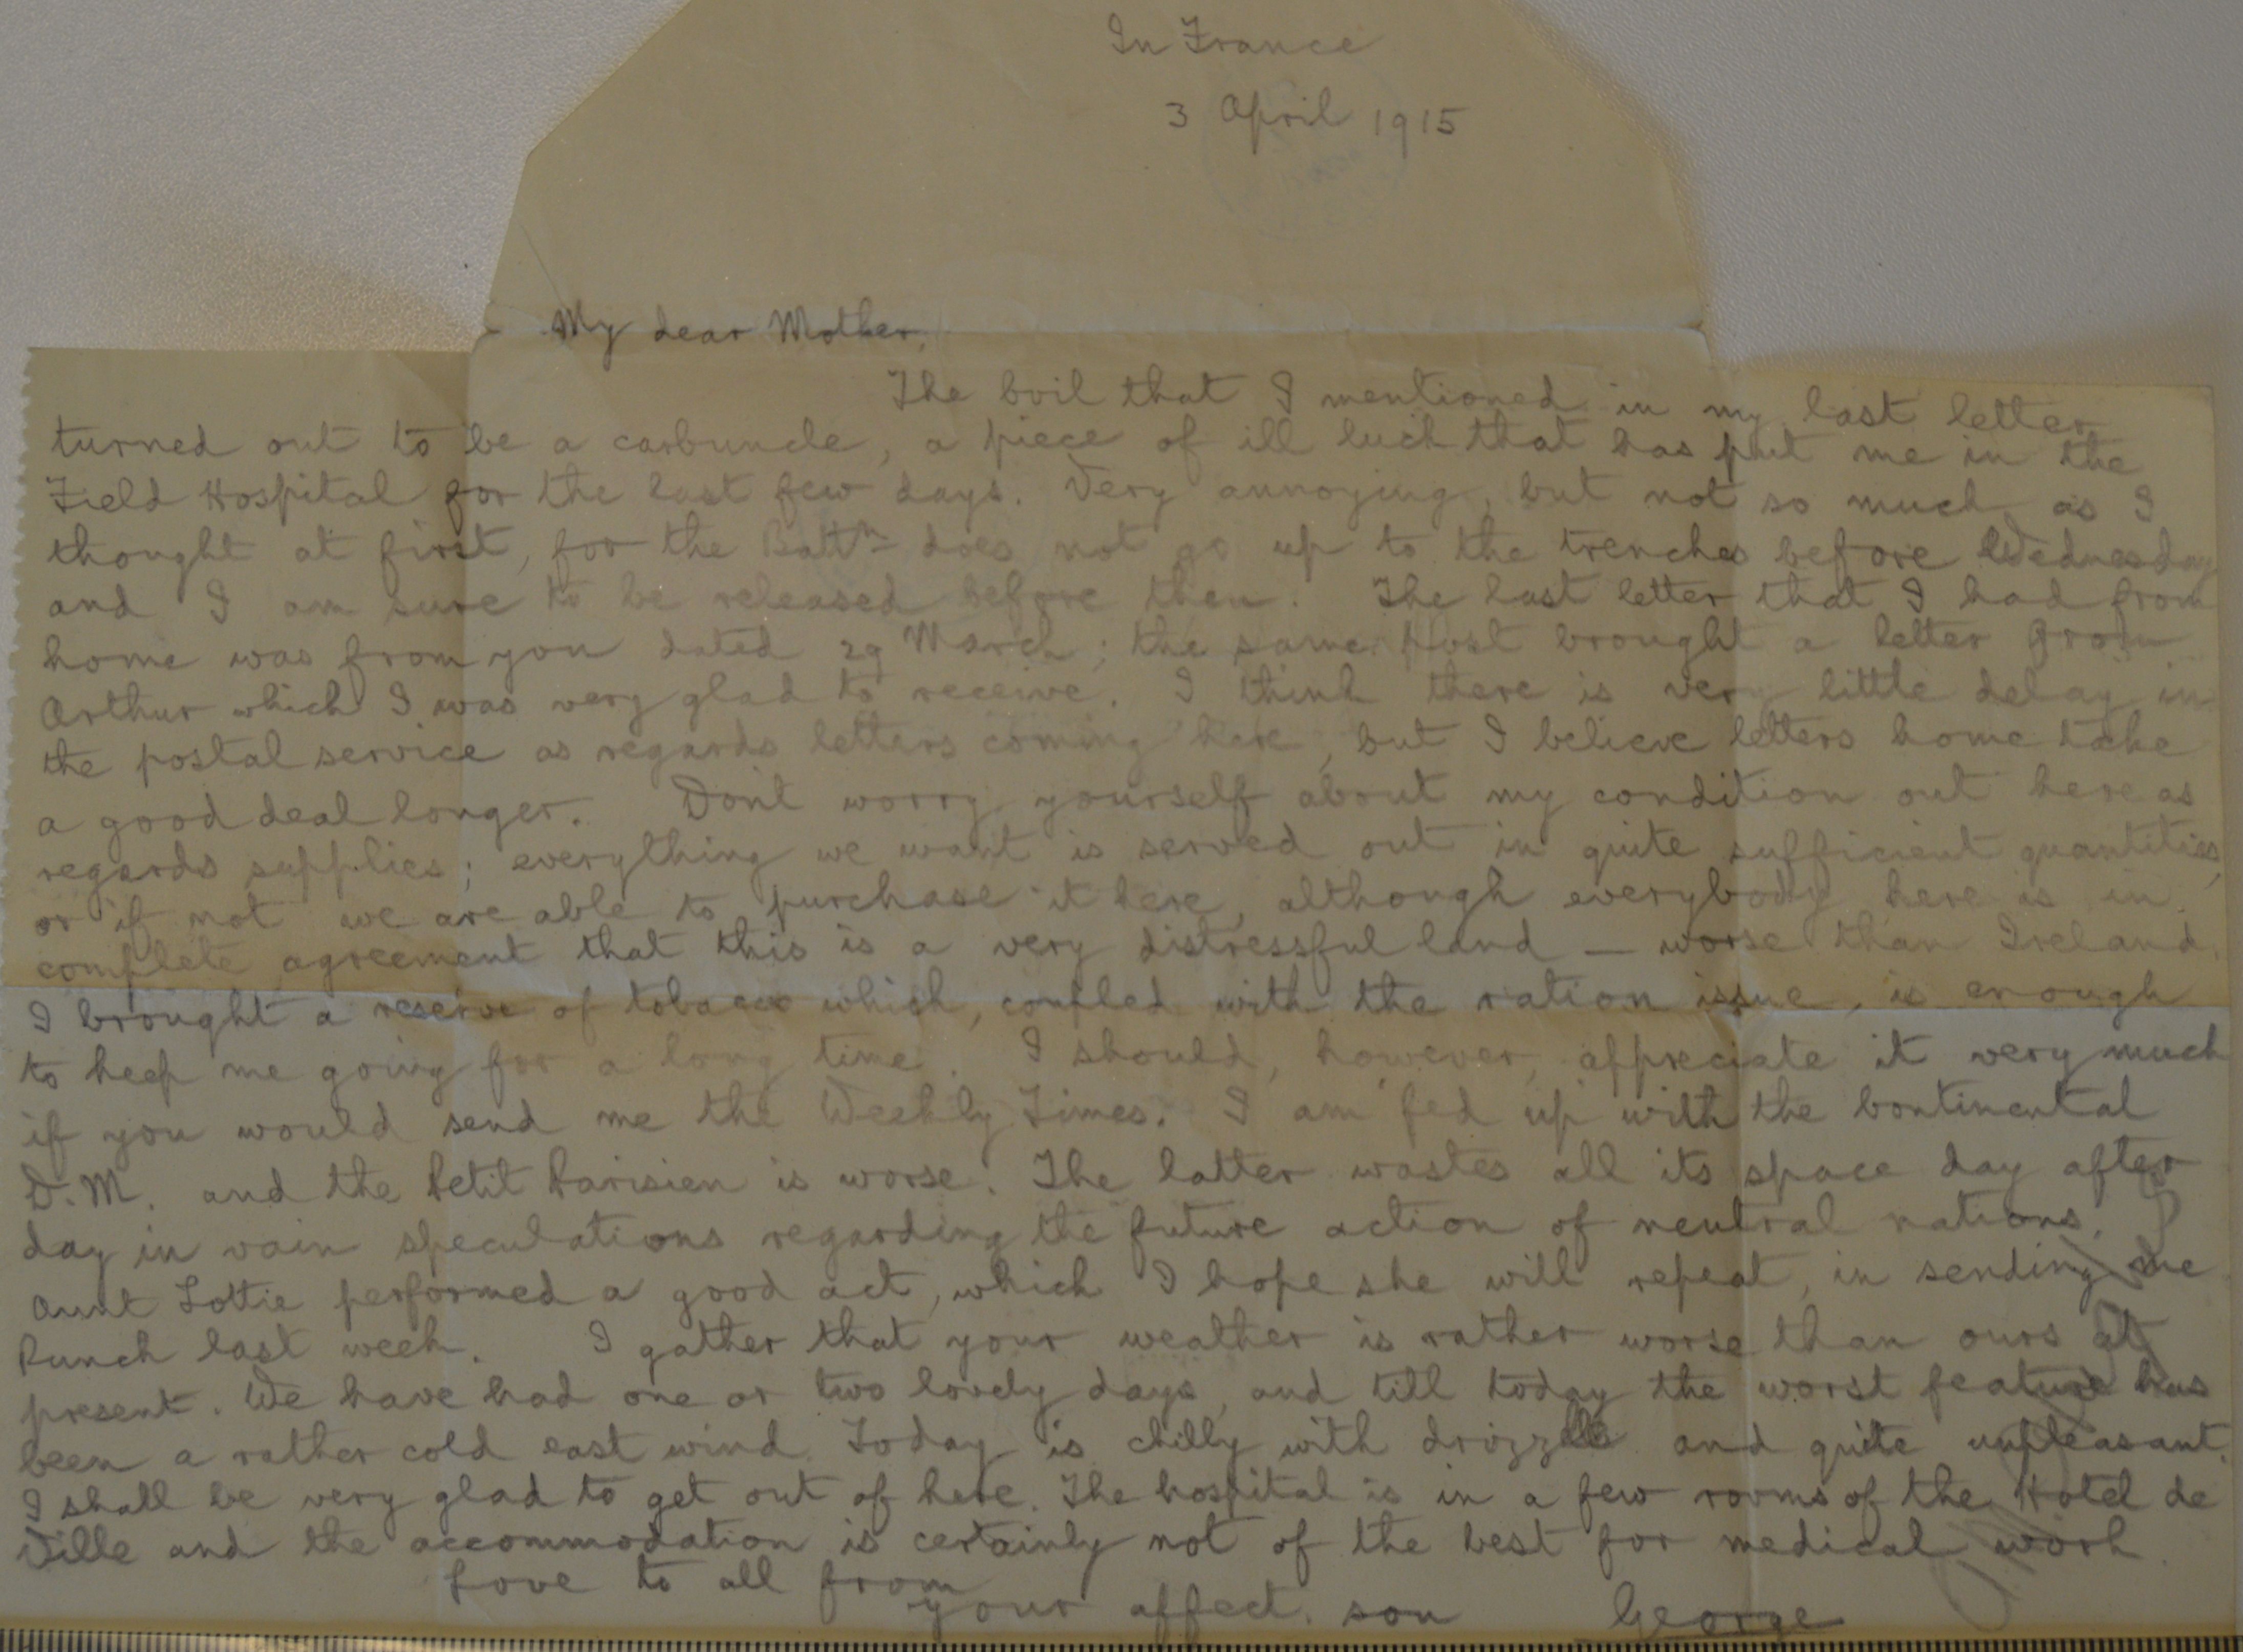 In France
3 April 1915
My dear Mother,
The boil that I mentioned in my last letter
turned out to be a carbuncle, a piece of ill luck that has put me in the
Field Hospital for the last few days. Very annoying, but not so much as I
thought at first, for the Battn does not go up to the trenches before Wednesday
and I am sure to be released before then. The last letter that I had from
home was from you dated 29 March; the same post brought a letter from
Arthur which I was very glad to receive. I think there is very little delay in
the postal service as regards letters coming here, but I believe letters home take
a good deal longer. Don't worry yourself about my condition out here as
regards supplies; everything we want is served out in quite sufficient quantities,
or if not we are able to purchase it here, although everybody here is in
complete agreement that this is a very distressful land — worse than Ireland.
I brought a reserve of tobacco which, coupled with the ration issue, is enough
to keep me going for a long time. I should, however, appreciate it very much
if you would send me the Weekly Times. I am fed up with the Continental
D.M. and the Petit Parisien is worse. The latter wastes all its space day after
day in vain speculations regarding the future action of neutral nations.
Aunt Lottie performed a good act, which I hope she will repeat, in sending me
Punch last week. I gather that your weather is rather worse than ours at
present. We have had one or two lovely days, and till today the worst feature has
been a rather cold east wind. Today is chilly with drizzle and quite unpleasant.
I shall be very glad to get out of here. The hospital is in a few rooms of the Hotel de
Ville and the accommodation is certainly not of the best for medical work.
Love to all from
your affect. son George